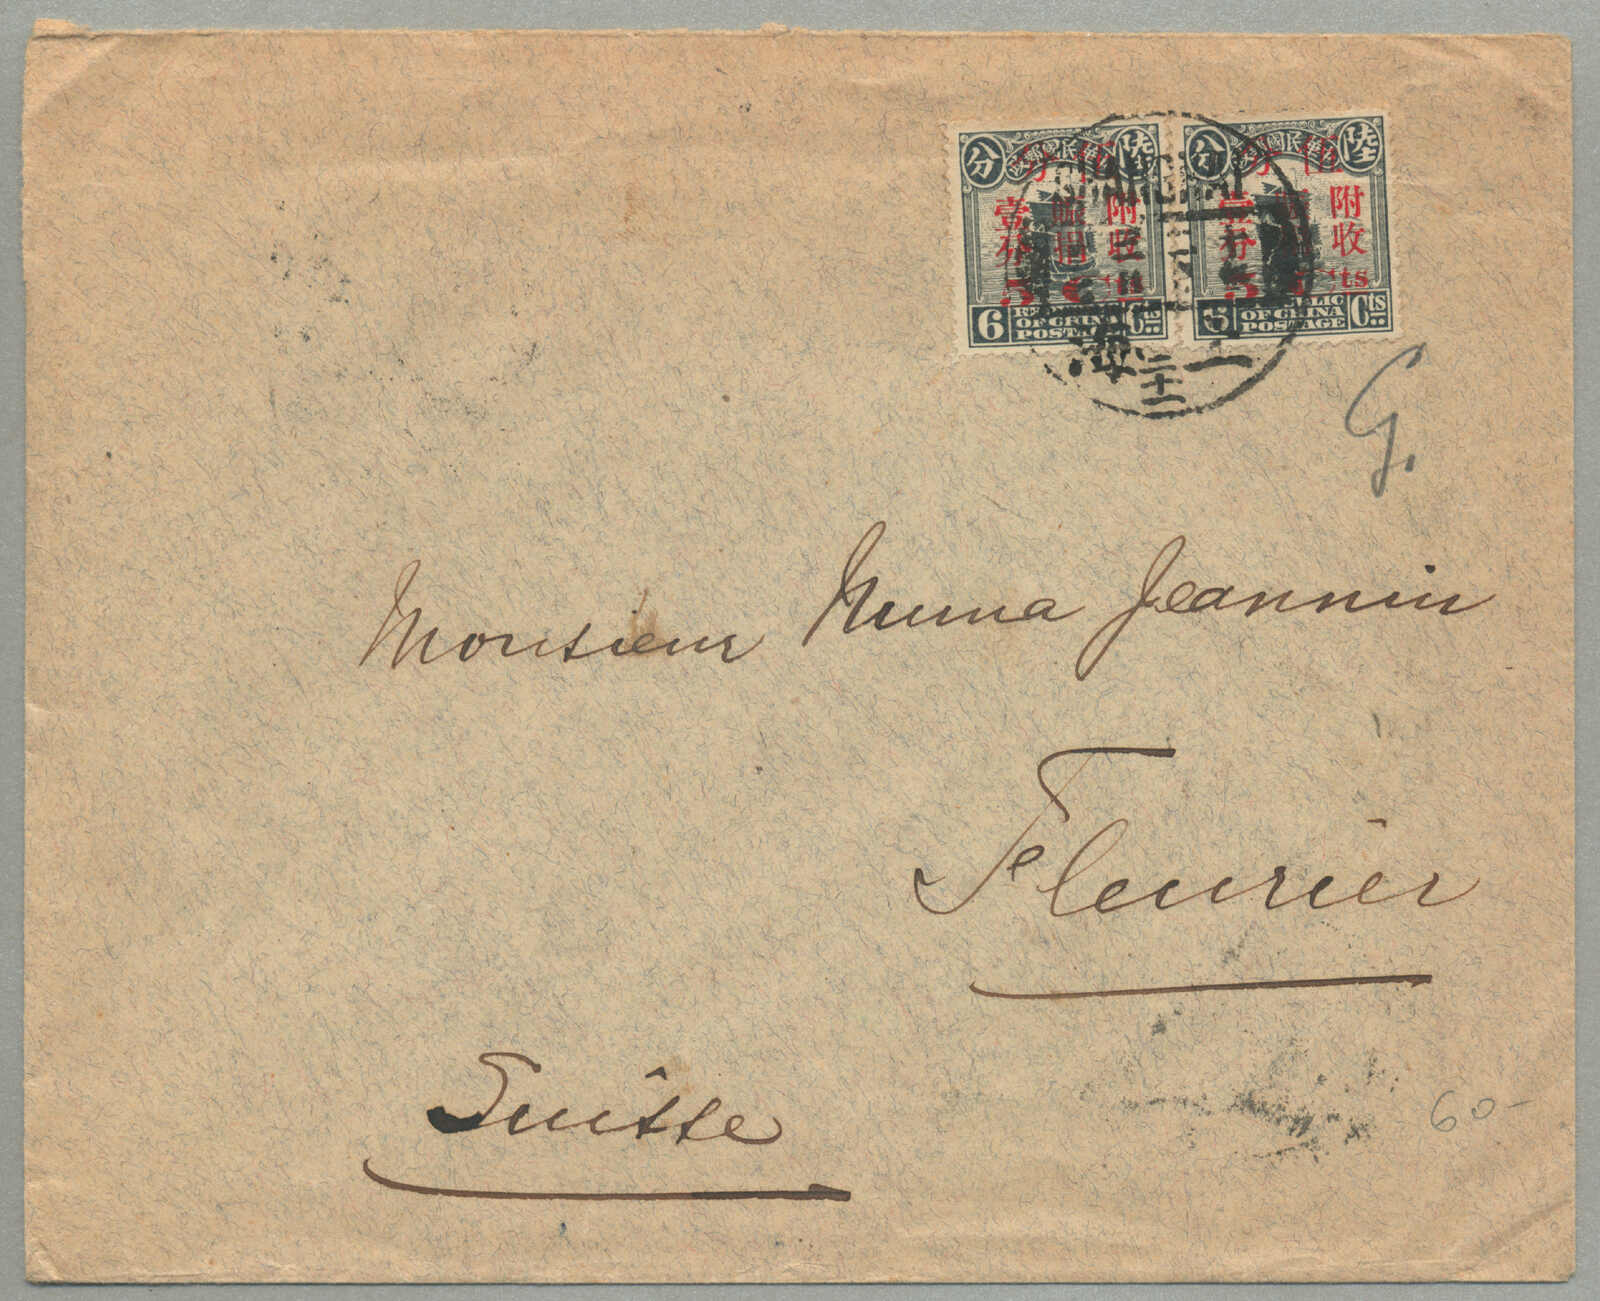 分 陸 分 陸
伍分
附收
賑捐
壹分
5 Cts
附收
壹分
5 Cts
6 REPUBLIC OF CHINA POSTAGE Cts
OF CHINA POSTAGE Cts
SHANGHAI
二十一
G.
Monsieur Numa Jeannin
Fleurier
Suisse
60-